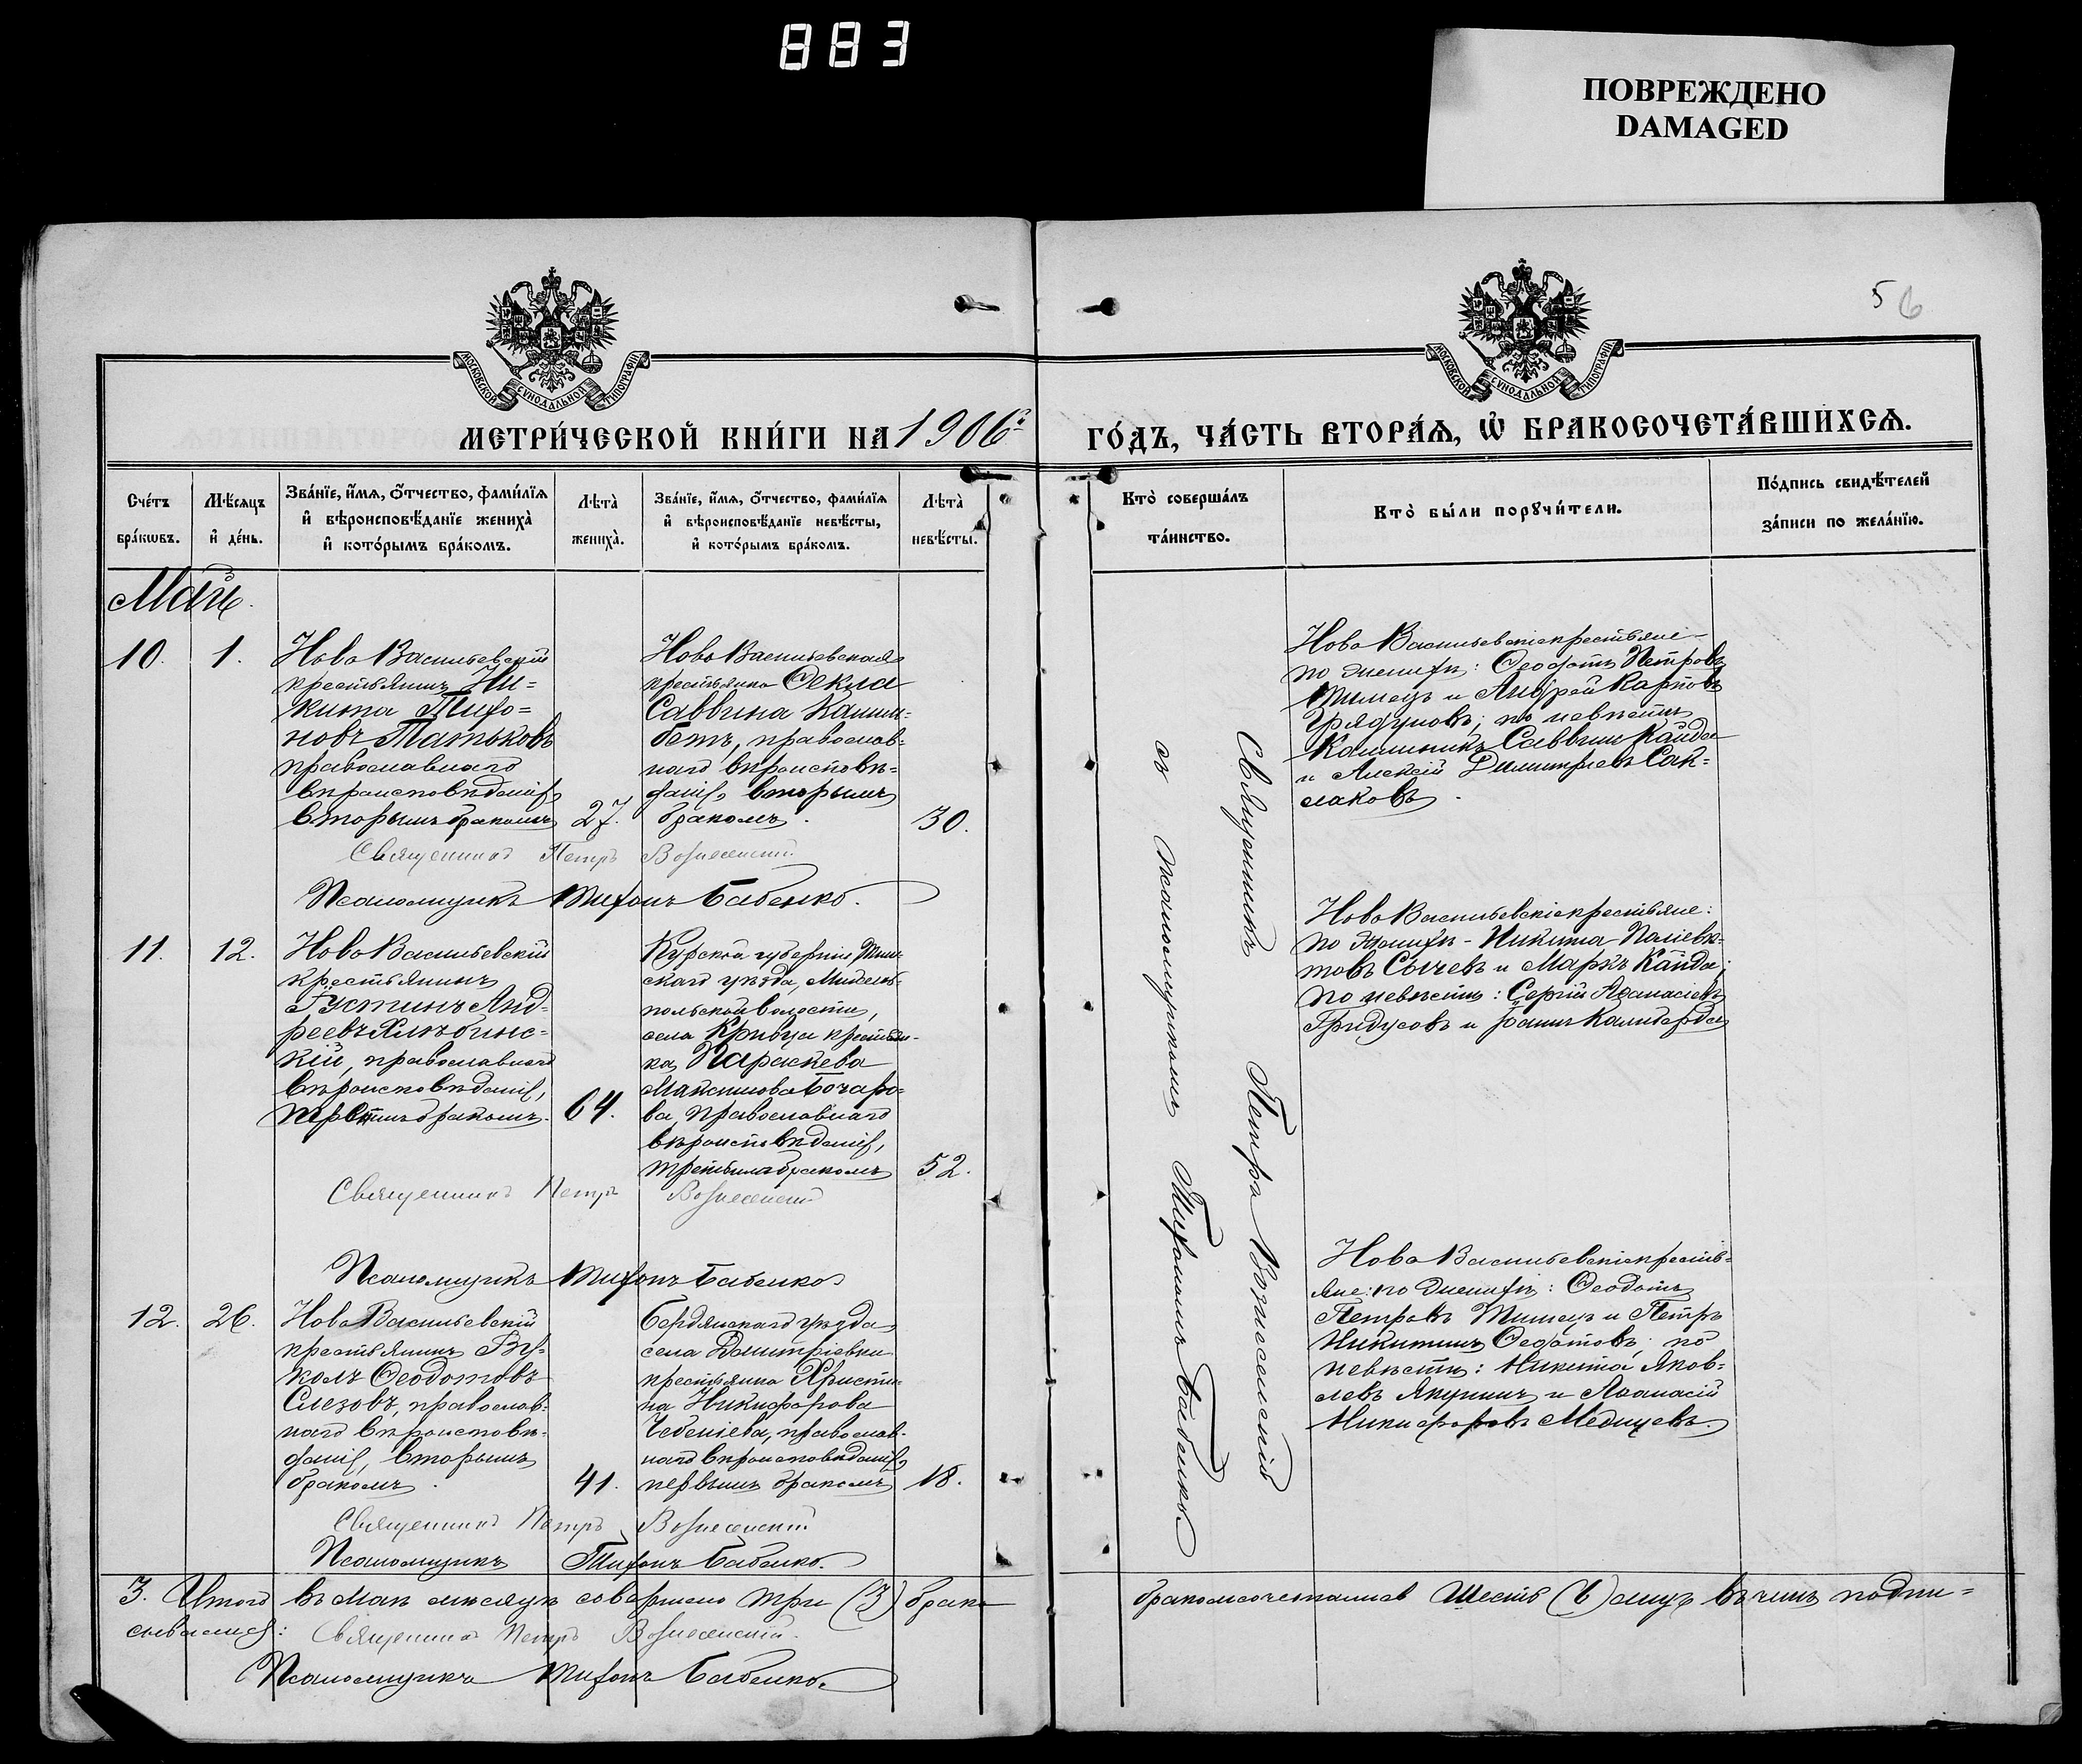 883
ПОВРЕЖДЕНО
DAMAGED
5 6
МОСКОВСКОЙ СѴНОДАЛЬНОЙ ТИПОГРАФІИ
МОСКОВСКОЙ СѴНОДАЛЬНОЙ ТИПОГРАФІИ
МЕТРИ́ЧЕСКОЙ КНИ́ГИ НА 1906 г.
ГО́ДЪ, ЧА́СТЬ ВТОРА́Я, Ѡ҆ БРАКОСОЧЕТА́ВШИХСЯ.
Сче́тъ бра́кѡвъ.
Мѣ́сяцъ и҆ де́нь.
Зва́нїе, и҆́мя, ѻ҆́тчество, фами́лїя и҆ вѣроисповѣ́данїе жениха̀ и҆ кото́рымъ бра́комъ.
Лѣта̀ жениха̀.
Зва́нїе, и҆́мя, ѻ҆́тчество, фами́лїя и҆ вѣроисповѣ́данїе невѣ́сты, и҆ кото́рымъ бра́комъ.
Лѣта̀ невѣ́сты.
Кто̀ соверша́лъ та́инство.
Кто̀ бы́ли порꙋчи́тели.
По́дпись свидѣ́телей за́писи по жела́нїю.
Май.
10.
1.
Ново Васильевскій
крестьянинъ Ни=
кита Тихо=
новъ Татьковъ
православнаго
вѣроисповѣданія,
вторымъ бракомъ
27.
Ново Васильевская
крестьянка Ѳекла
Саввина
православ=
наго вѣроисповѣ=
данія, вторымъ
бракомъ.
30.
Ново Васильевскіе крестьяне
по женихѣ: Ѳеодотъ Петровъ
Тимецъ и Андрей Карповъ
Грядуновъ; по невѣстѣ
Каллиникъ Саввинъ Кайда
и Алексій Димитріевъ Сак=
лаковъ.
Священникъ Петръ Вознесенскій
Псаломщикъ Тихонъ Бабенко.
11.
12.
Ново Васильевскій
крестьянинъ
Густинъ Анд=
реевъ Хлѣбинс=
кій, православнаго
вѣроисповѣданія,
третьимъ бракомъ.
64.
Курской губерніи Тим=
скаго уѣзда,
польской волости,
села Кривца крестьян=
ка Параскева
Максимова Бочаро=
ва, православнаго
вѣроисповѣданія,
третьимъ бракомъ
52.
Ново Васильевскіе крестьяне:
по женихѣ - Никита Поліевк=
товъ Сычевъ и Маркъ Кайда;
по невѣстѣ: Сергій Аѳанасіевъ
Гридусовъ и Іоаннъ Калиберда
Священникъ Петръ Вознесенскій
Псаломщикъ Тихонъ Бабенко
12.
26.
Ново Васильевскій
крестьянинъ Ву=
колъ Ѳеодотовъ
Слезовъ, православ=
наго вѣроисповѣ=
данія, вторымъ
бракомъ.
41.
Бердянскаго уѣзда
села Димитріевки
крестьянка Христи=
на Никифорова
православ=
наго вѣроисповѣданія,
первымъ бракомъ
18.
Ново Васильевскіе кресть=
яне: по женихѣ: Ѳеодотъ
Петровъ Тимецъ и Петръ
Никитинъ Ѳедотовъ; по
невѣстѣ: Никита Яков=
левъ Якунинъ и Аѳанасій
Никифоровъ Медицевъ.
Священникъ Петръ Вознесенскій
Псаломщикъ Тихонъ Бабенко.
Священникъ Петръ Вознесенскій
съ псаломщикомъ Тихономъ Бабенко
3. Итого въ маѣ мѣсяцѣ совершено три (3) брака
бракосочетавшихся шесть (6) лицъ въ чемъ подпи=
сываемся: Священникъ Петръ Вознесенскій.
Псаломщикъ Тихонъ Бабенко.